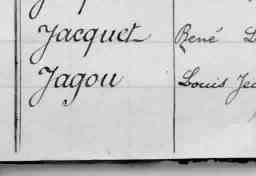 Jacquet René
Jagou Louis